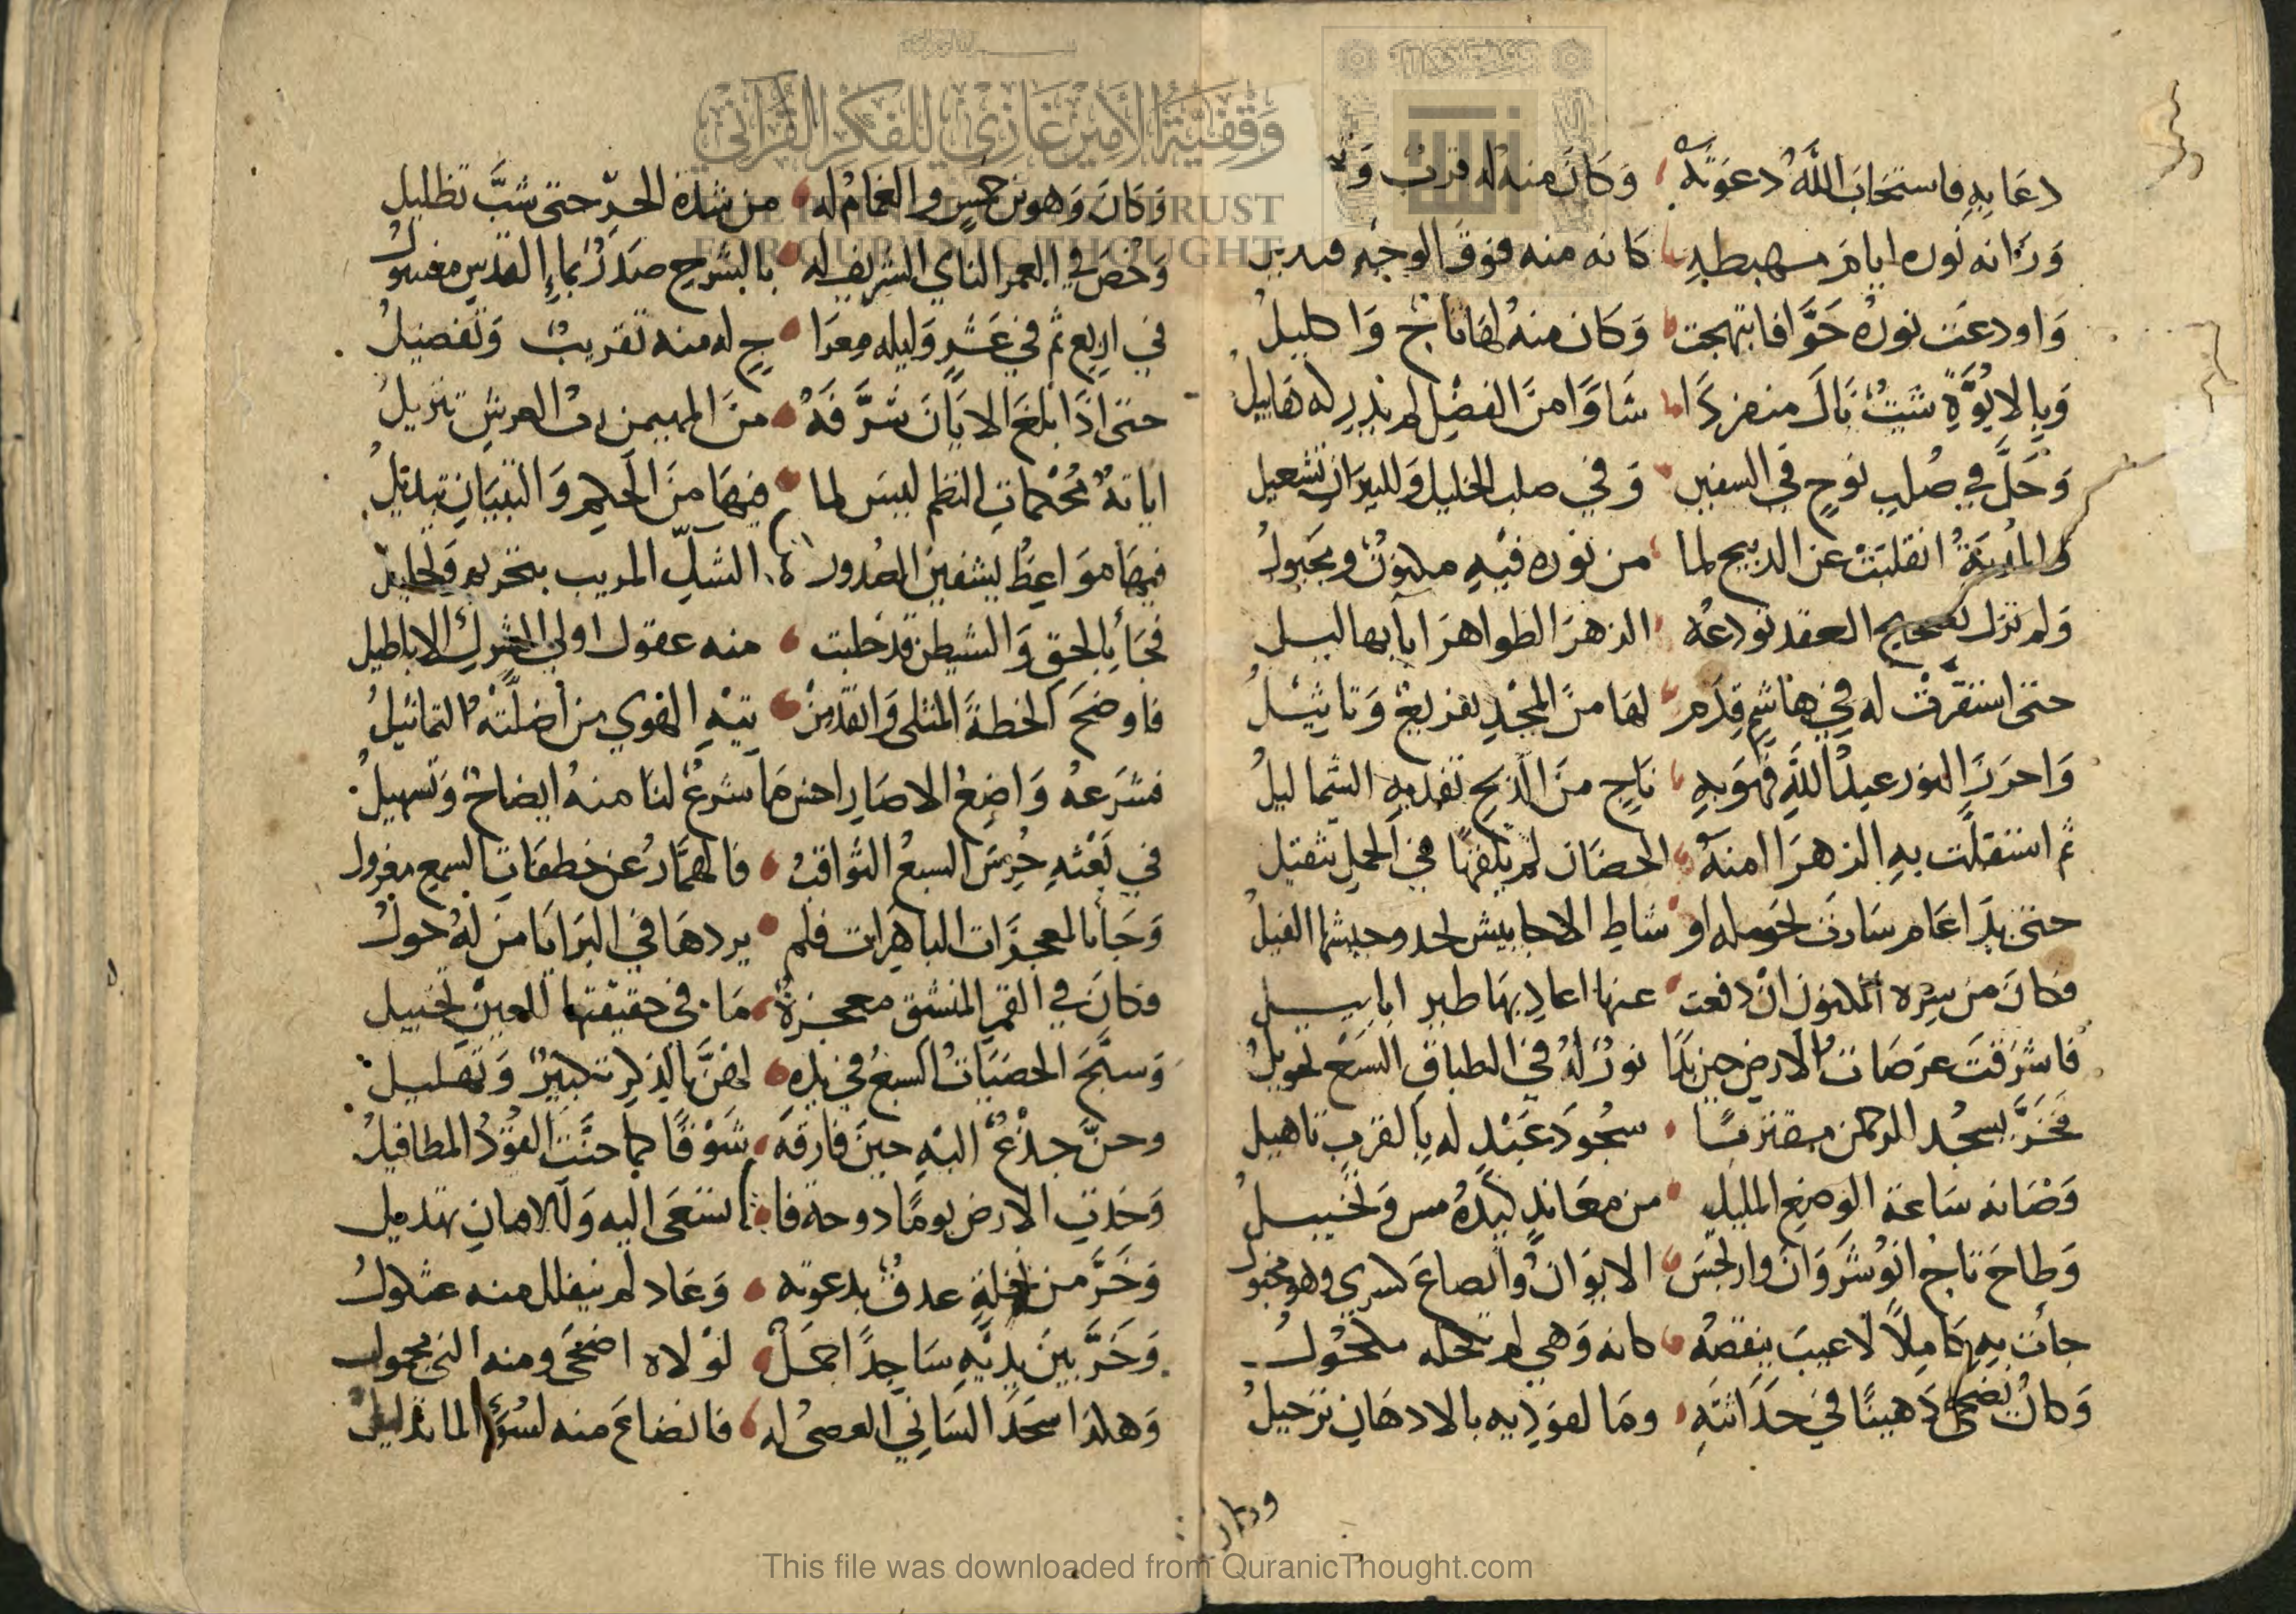 وقفية الأمير غازي للفكر القرآني
TRUST
FOR QURANIC THOUGHT
دعا به فاستجاب الله دعوته وكان منه له قرب و
وزانه نوره ايام مهبطه كانه منه فوق الوجه قنديل
واودعت نوره حوا فابتهجت وكان منه لها تاج واكليل
وبالابوة شيث نال منفردا شاوا من الفضل لم يدر له هابيل
وحل في صلب نوح في السفين وفي صلب الخليل وللنيران تشعيل
والمدية انقلبت عن الذبيح لما من نوره فيه مكنون ومجبول
ولم تزل لصحيح العقد تودعه الزهر الطواهر اباها
حتى استقرت له في هاشم قدم لها من المجد تفريع وتاثيل
واحرز النور عبد الله فهو به ناج من الذبح تفديه الشماليل
ثم استقلت به الزهرا امنة الحصان لم يلفها في الحمل تثقيل
حتى بدا عام سارت الاحابيش وجيشها الفيل
فكان من سره المكنون ان دفعت عنها اعاديها طير ابابيل
فاشرقت عرصات الارض حين بدا نور له في الطباق السبع تحويل
فخر يسجد للرحمن مقتربا سجود عبد له بالقرب تاهيل
وصانه ساعة الوضع المليك من معاند كيده مس وتخبيل
وطاح تاج انوشروان وارتجس الايوان وانصاع كسرى وهو مخبول
جأت به كاملا لا عيب ينقصه كانه وهي لم تكحله مكحول
وكان يضحى دهينا في حداثته وما لفوديه بالادهان ترجيل
وكان
وكان وهو بن خمس والغمام له من شدة الحر حتى شب تظليل
وخص في العمر الشريف له بالشرح صدر بماء القدس مغسول
في اربع ثم في عشر وليله معرا ج له منه تقريب وتفضيل
حتى اذا بلغ الابان شرفه من المهيمن رب العرش تنزيل
اياته محكمات النظم ليس لما فيها من الحكم والتبيان تبديل
فيها مواعظ يشفين الصدور الشك المريب بتحريم وتحليل
فجأ بالحق والشيطن قد خلبت منه عقول اولي الشرك الاباطيل
فاوضح الخطة المثلى وانقذ من تيه الهوى من اضلته التماثيل
فشرعه واضع الاصار احسن ما شرع لنا منه ايضاح وتسهيل
في بعثه حرس السبع الثواقب فا لهمار عن خطفات السمع معزول
وجأ بالمعجزات الباهرات فلم يردها في البرايا من له حول
فكان في القمر المنشق معجزة ما في حقيقتها للعين تخييل
وسبح الحصيات السبع في يده لهن بالذكر تكبير وتهليل
وحن جذع اليه حين فارقه شوقا كما حنت العوذ المطافيل
وخدت الارض يوما دوحة فا ستدعى اليه وللاغصان تهديل
وخر من نخلة عذق بدعوته وعاد لم ينفلل منه عثكول
وخر بين يديه ساجدا جمل لولاه اضحى ومنه الني محمول
وهكذا سجد الساني العصي له فانصاع منه لسؤ الما تذليل
This file was downloaded from QuranicThought.com